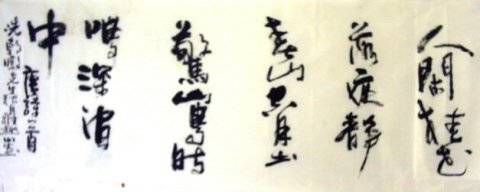 人閒桂花
落夜靜
春山空月出
驚山鳥時
鳴深澗
中
唐詩一首